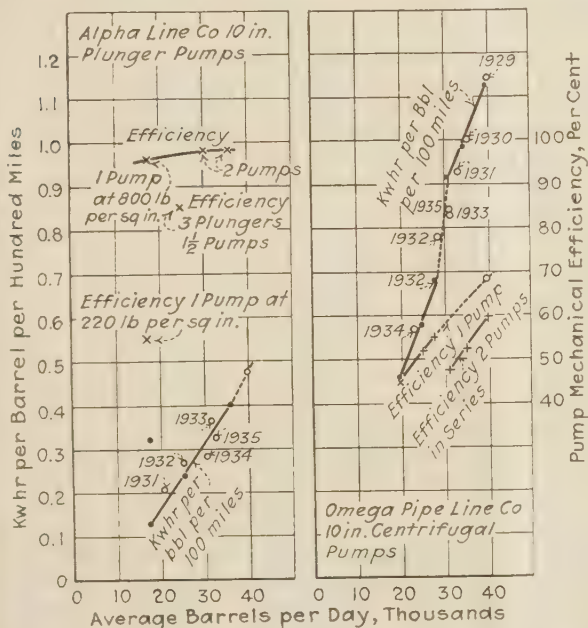 Alpha Line Co 10 in.
Plunger Pumps
Kwhr per Barrel per Hundred Miles
1.2
1.1
1.0
0.9
0.8
0.7
0.6
0.5
0.4
0.3
0.2
0.1
0
Efficiency
2 Pumps
1 Pump
at 800 lb
per sq in.
Efficiency
3 Plungers
1½ Pumps
Efficiency 1 Pump at
220 lb per sq in.
1933
1935
1932
1934
1931
Kwhr per
bbl per
100 miles
0 10 20 30 40
1929
Kwhr per Bbl
per 100 miles
1930
1931
1935
1933
1932
1932
1934
Efficiency 1 Pump
Efficiency 2 Pumps
in Series
Omega Pipe Line Co
10 in. Centrifugal
Pumps
0 10 20 30 40
100
90
80
70
60
50
40
Pump Mechanical Efficiency, Per Cent
Average Barrels per Day, Thousands